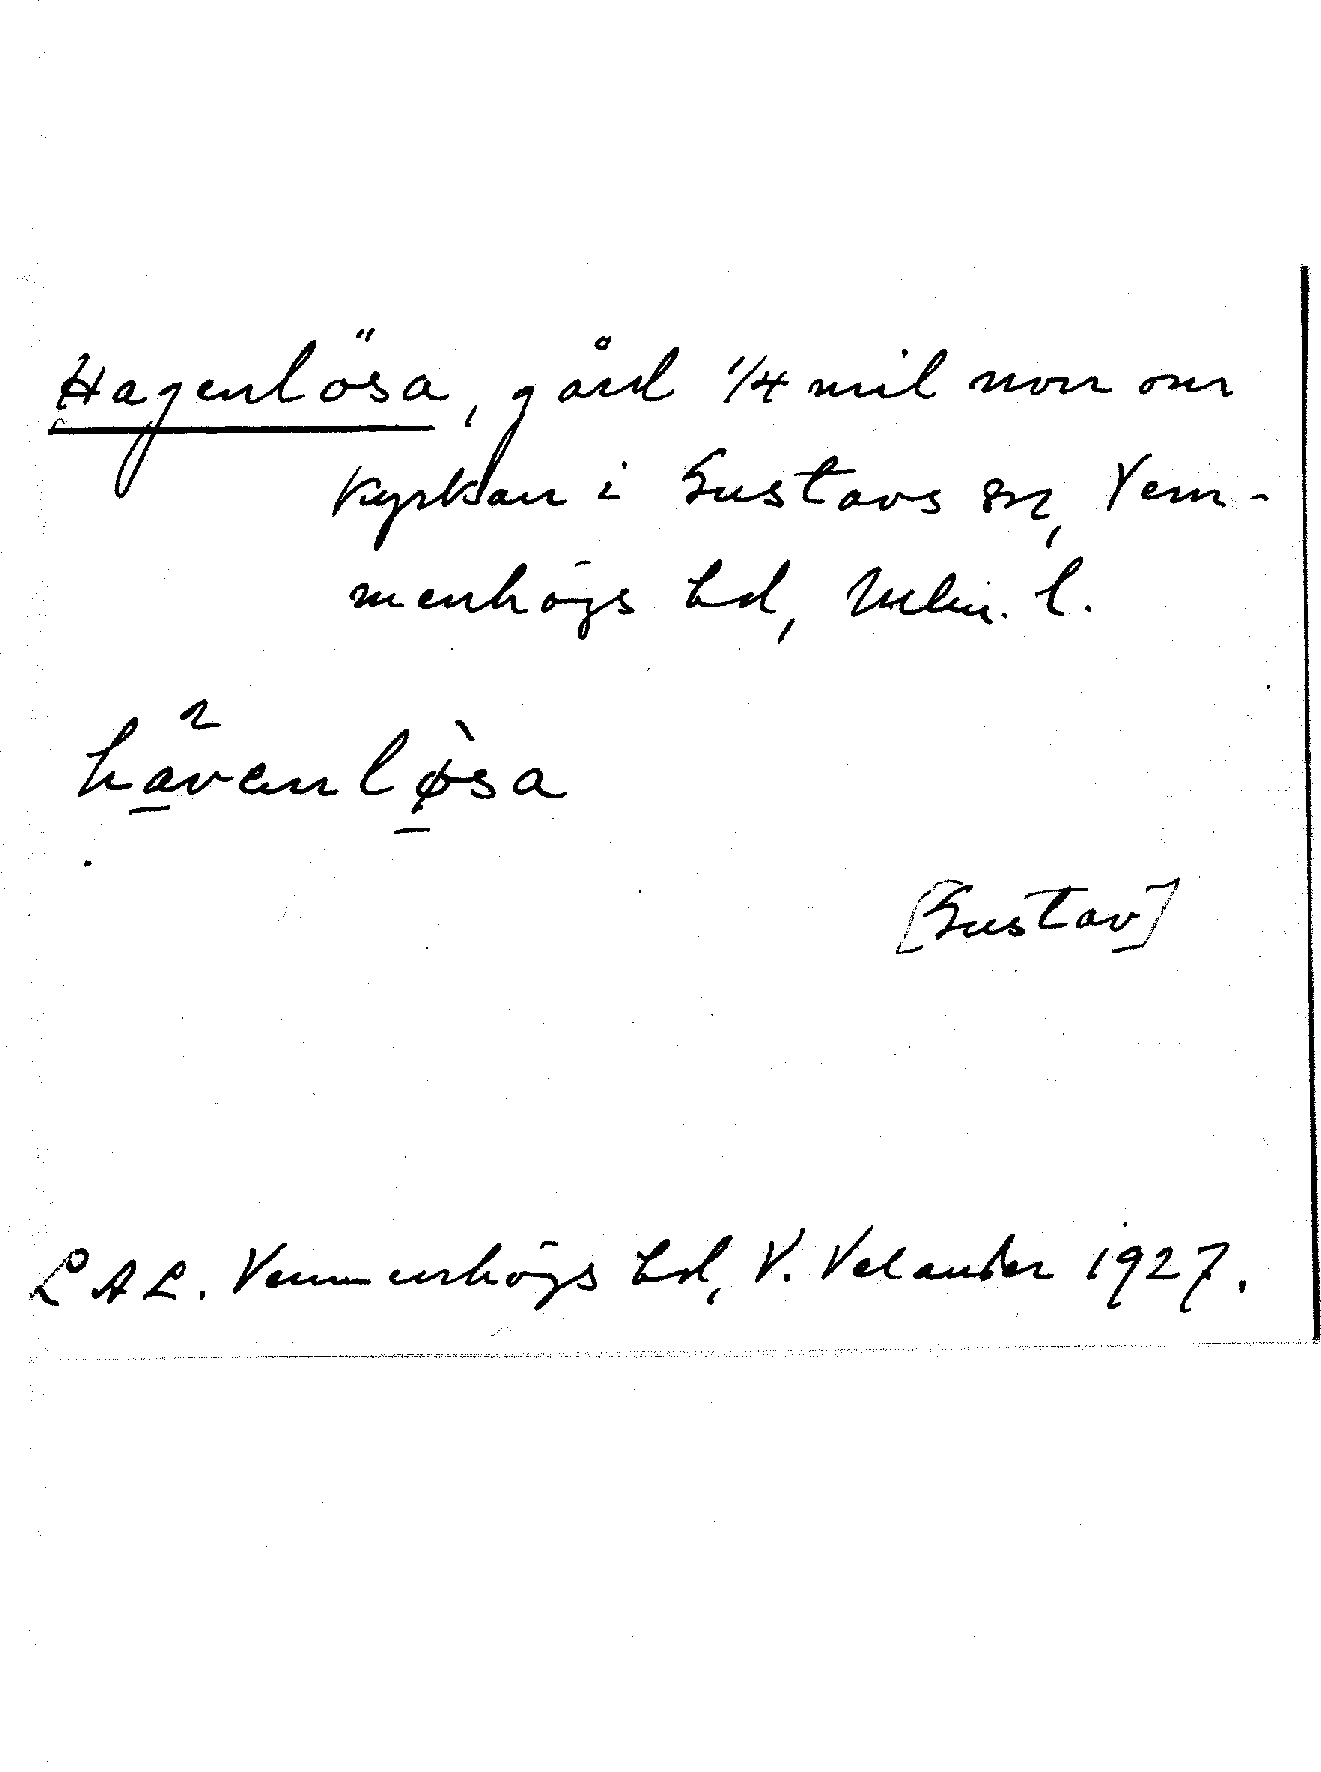 Hagenlösa, gård 1/4 mil norr om
kyrkan i Gustavs sn, Vem-
menhögs hd, Mlm. l.
hàvenlø̀sa
[Gustav]
LAL. Vemmenhögs hd, V. Velander 1927.